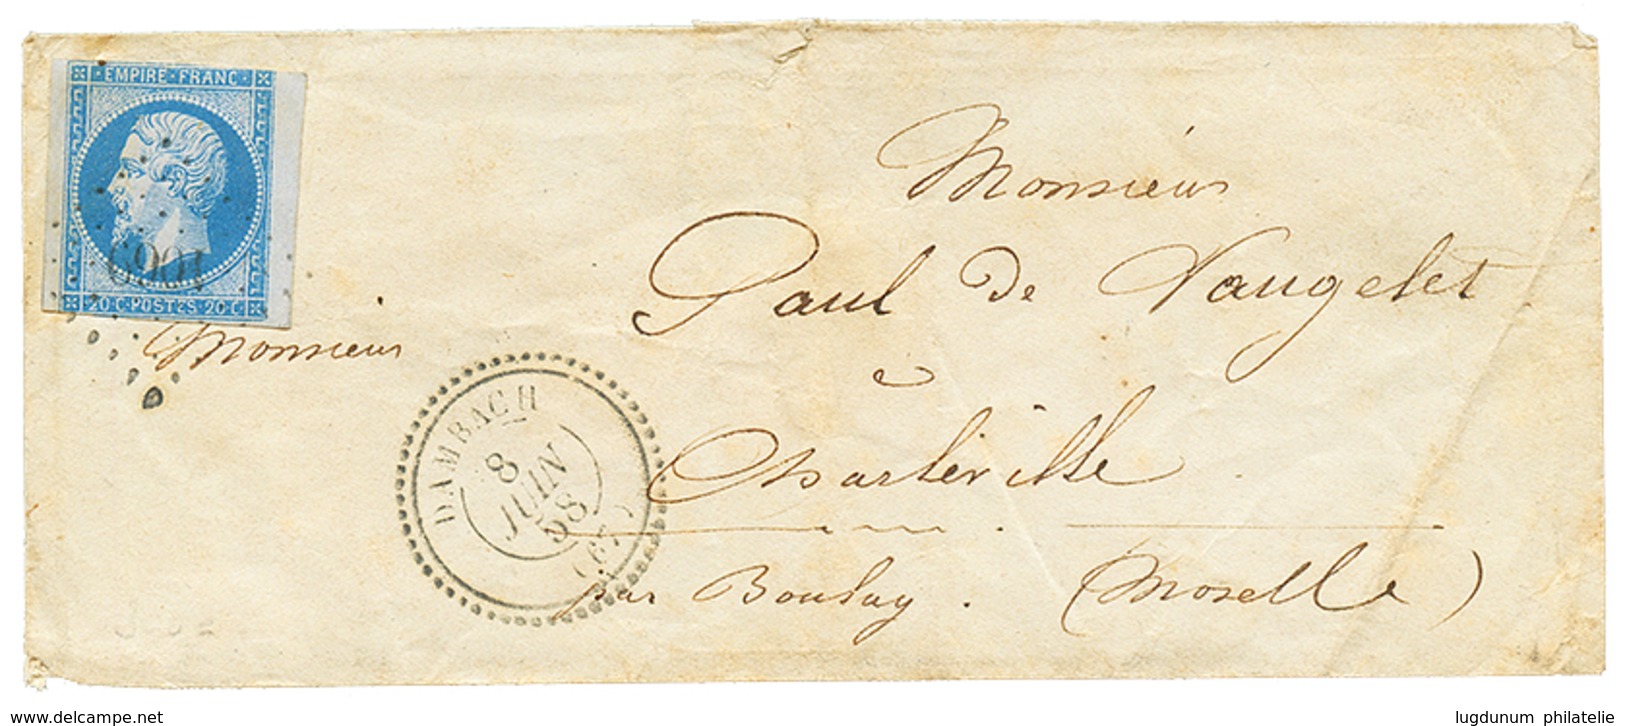 EMPIRE · FRANC ·
1069
20 · C · POSTES · 20 · C
Monsieur
Monsieur
Paul de Vaugelet
à
Charleville
par Boulay . ( Moselle )
DAMBACH
8
JUIN
58
(67)
www.delcampe.net
lugdunum philatelie